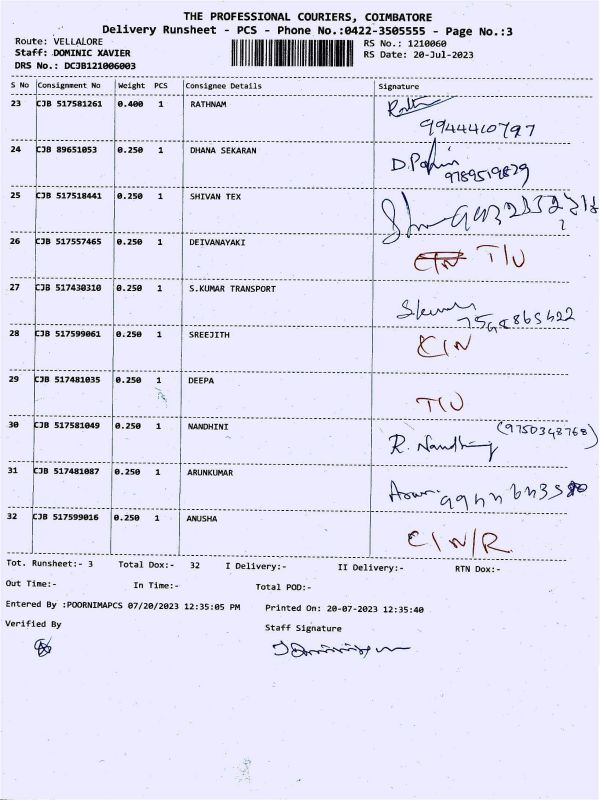 THE PROFESSIONAL COURIERS, COIMBATORE
Delivery Runsheet - PCS - Phone No.:0422-3505555 - Page No.:3
Route: VELLALORE RS No.: 1210060
Staff: DOMINIC XAVIER RS Date: 20-Jul-2023
DRS No.: DCJB121006003
S No Consignment No Weight PCS Consignee Details Signature
23 CJB 517581261 0.400 1 RATHNAM
9944410797
24 CJB 89651053 0.250 1 DHANA SEKARAN
9789519829
25 CJB 517518441 0.250 1 SHIVAN TEX
26 CJB 517557465 0.250 1 DEIVANAYAKI
T/U
27 CJB 517430310 0.250 1 S.KUMAR TRANSPORT
28 CJB 517599061 0.250 1 SREEJITH
C/N
29 CJB 517481035 0.250 1 DEEPA
T/U
30 CJB 517581049 0.250 1 NANDHINI (9750348768)
R. Nandhini
31 CJB 517481087 0.250 1 ARUNKUMAR
32 CJB 517599016 0.250 1 ANUSHA
C/N/R.
Tot. Runsheet:- 3 Total Dox:- 32 I Delivery:- II Delivery:- RTN Dox:-
Out Time:- In Time:- Total POD:-
Entered By :POORNIMAPCS 07/20/2023 12:35:05 PM Printed On: 20-07-2023 12:35:40
Verified By Staff Signature